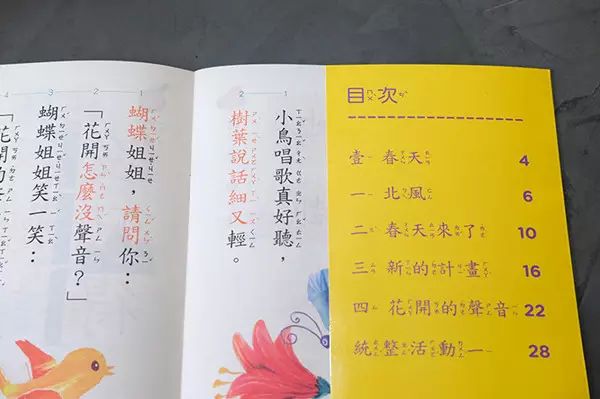 目次
壹 春天 4
一 北風 6
二 春天來了 10
三 新的計畫 16
四 花開的聲音 22
統整活動一 28
1 小鳥唱歌真好聽，
2 樹葉說話細又輕。
1 蝴蝶姐姐，請問你：
2 「花開怎麼沒聲音？」
3 蝴蝶姐姐笑一笑：
4 「花開